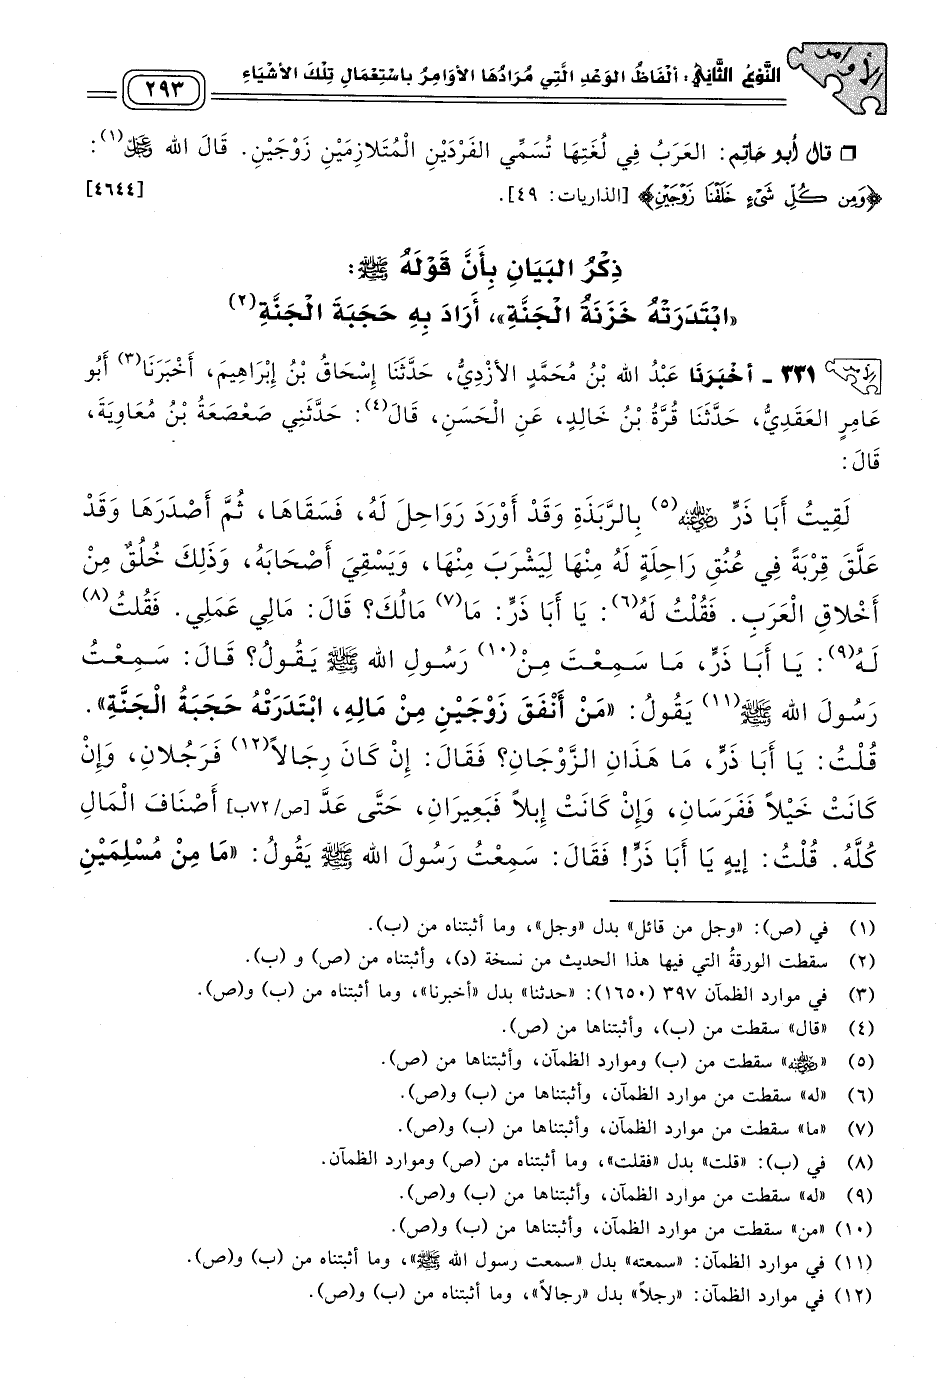 الأوامر
النَّوْعُ الثَّانِي: أَلْفَاظُ الوَعْدِ الَّتِي مُرَادُهَا الأَوَامِرُ بِاسْتِعْمَالِ تِلْكَ الأَشْيَاءِ
٢٩٣
❒ قال أبو حاتِم: العَرَبُ فِي لُغَتِهَا تُسَمِّي الفَرْدَيْنِ الْمُتَلَازِمَيْنِ زَوْجَيْنِ. قَالَ الله ﷿(١):
﴿وَمِن كُلِّ شَىْءٍ خَلَقْنَا زَوْجَيْنِ﴾ [الذاريات: ٤٩]. [٤٦٤٤]
ذِكْرُ البَيَانِ بِأَنَّ قَوْلَهُ ﷺ:
«ابْتَدَرَتْهُ خَزَنَةُ الْجَنَّةِ»، أَرَادَ بِهِ حَجَبَةَ الْجَنَّةِ(٢)
الأوامر ٣٣١ - أَخْبَرَنَا عَبْدُ الله بْنُ مُحَمَّدٍ الأَزْدِيُّ، حَدَّثَنَا إِسْحَاقُ بْنُ إِبْرَاهِيمَ، أَخْبَرَنَا(٣) أَبُو
عَامِرٍ العَقَدِيُّ، حَدَّثَنَا قُرَّةُ بْنُ خَالِدٍ، عَنِ الْحَسَنِ، قَالَ(٤): حَدَّثَنِي صَعْصَعَةُ بْنُ مُعَاوِيَةَ،
قَالَ:
لَقِيتُ أَبَا ذَرٍّ ﵁(٥) بِالرَّبَذَةِ وَقَدْ أَوْرَدَ رَوَاحِلَ لَهُ، فَسَقَاهَا، ثُمَّ أَصْدَرَهَا وَقَدْ
عَلَّقَ قِرْبَةً فِي عُنُقِ رَاحِلَةٍ لَهُ مِنْهَا لِيَشْرَبَ مِنْهَا، وَيَسْقِيَ أَصْحَابَهُ، وَذَلِكَ خُلُقٌ مِنْ
أَخْلاقِ الْعَرَبِ. فَقُلْتُ لَهُ(٦): يَا أَبَا ذَرٍّ: مَا(٧) مَالُكَ؟ قَالَ: مَالِي عَمَلِي. فَقُلتُ(٨)
لَهُ(٩): يَا أَبَا ذَرٍّ، مَا سَمِعْتَ مِنْ(١٠) رَسُولِ الله ﷺ يَقُولُ؟ قَالَ: سَمِعْتُ
رَسُولَ الله ﷺ(١١) يَقُولُ: «مَنْ أَنْفَقَ زَوْجَيْنِ مِنْ مَالِهِ، ابْتَدَرَتْهُ حَجَبَةُ الْجَنَّةِ».
قُلْتُ: يَا أَبَا ذَرٍّ، مَا هَذَانِ الزَّوْجَانِ؟ فَقَالَ: إِنْ كَانَ رِجَالاً(١٢) فَرَجُلانِ، وَإِنْ
كَانَتْ خَيْلاً فَفَرَسَانِ، وَإِنْ كَانَتْ إِبلاً فَبَعِيرَانِ، حَتَّى عَدَّ [ص/٧٢ب] أَصْنَافَ الْمَالِ
كُلَّهُ. قُلْتُ: إِيهِ يَا أَبَا ذَرٍّ! فَقَالَ: سَمِعْتُ رَسُولَ الله ﷺ يَقُولُ: «مَا مِنْ مُسْلِمَيْنِ
(١) في (ص): «وجل من قائل» بدل «وجل»، وما أثبتناه من (ب).
(٢) سقطت الورقةُ التي فيها هذا الحديث من نسخة (د)، وأثبتناه من (ص) و (ب).
(٣) في موارد الظمآن ٣٩٧ (١٦٥٠): «حدثنا» بدل «أخبرنا»، وما أثبتناه من (ب) و(ص).
(٤) «قال» سقطت من (ب)، وأثبتناها من (ص).
(٥) «﵁» سقطت من (ب) وموارد الظمآن، وأثبتناها من (ص).
(٦) «له» سقطت من موارد الظمآن، وأثبتناها من (ب) و(ص).
(٧) «ما» سقطت من موارد الظمآن، وأثبتناها من (ب) و(ص).
(٨) في (ب): «قلت» بدل «فقلت»، وما أثبتناه من (ص) وموارد الظمآن.
(٩) «له» سقطت من موارد الظمآن، وأثبتناها من (ب) و(ص).
(١٠) «من» سقطت من موارد الظمآن، وأثبتناها من (ب) و(ص).
(١١) في موارد الظمآن: «سمعته» بدل «سمعت رسول الله ﷺ»، وما أثبتناه من (ب) و(ص).
(١٢) في موارد الظمآن: «رجلاً» بدل «رجالاً»، وما أثبتناه من (ب) و(ص).